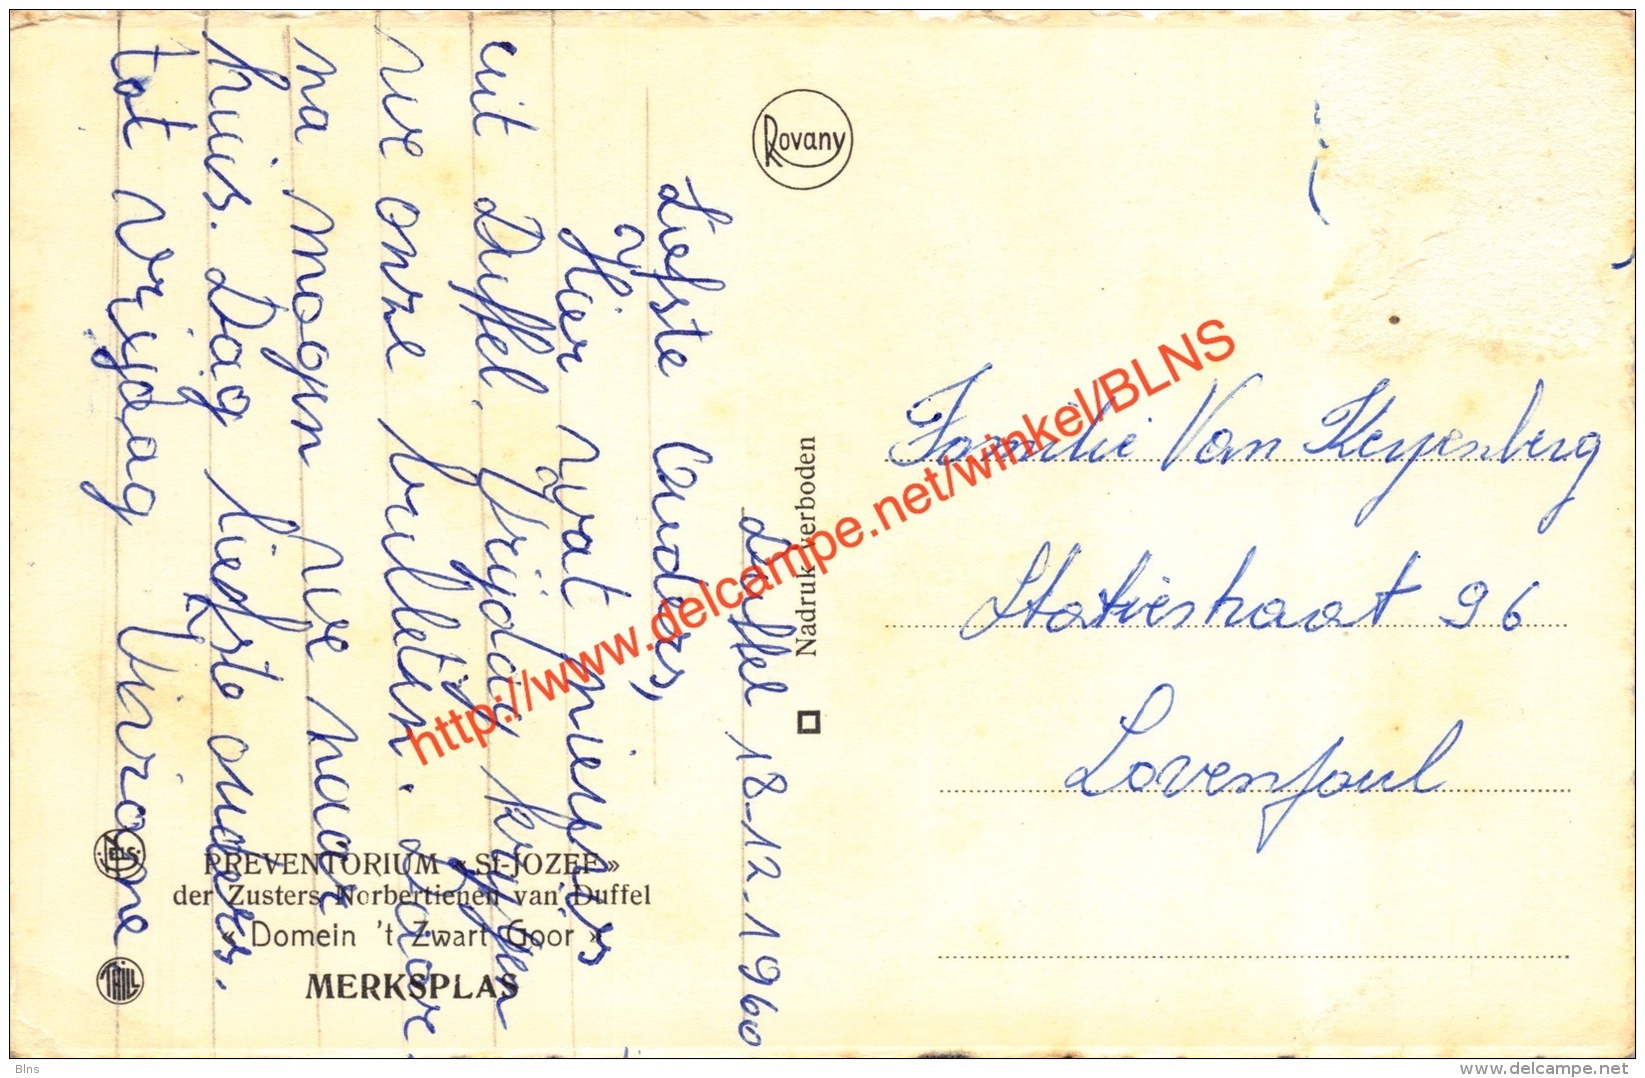 Rovany
Nadruk verboden
Duffel 18-12-1960
Liefste Ouders,
Hier wat nieuws
uit Duffel. Vrijdag krijgen
we onze bulletin.
na mogen we naar
huis. Dag liefste ouders.
tot vrijdag Viviane
Familie Van Keyenberg
Statiestraat 96
Lovenjoul
PREVENTORIUM « St-JOZEF »
der Zusters Norbertienen van Duffel
« Domein 't Zwart Goor »
MERKSPLAS
ELS
THILL
http://www.delcampe.net/winkel/BLNS
Blns
www.delcampe.net